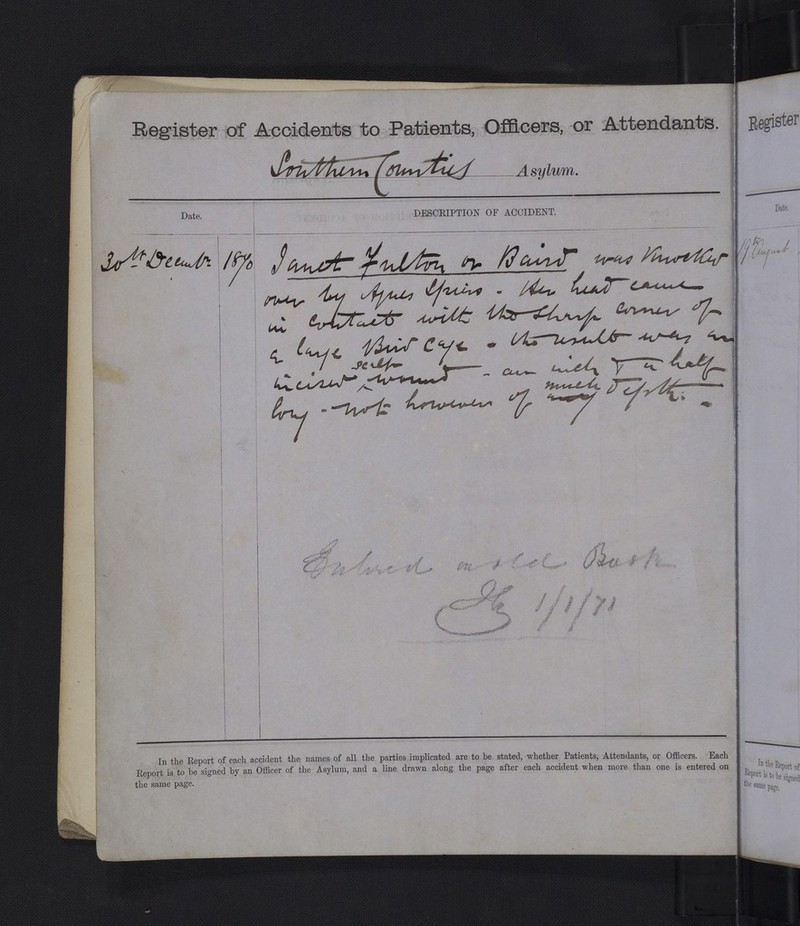 Register of Accidents to Patients, Officers, or Attendants.
Southern Counties Asylum.
Date.
DESCRIPTION OF ACCIDENT.
30th Decembr 1870
Janet Fulton or Baird was knocked
over by Agnes Spiers - Her head came
in contact with the sharp corner of
a large Bird Cage - the result was an
incised scalp wound - an inch & a half
long - not however of much depth. -
Entered in old Book
1/1/71
In the Report of each accident the names of all the parties implicated are to be stated, whether Patients, Attendants, or Officers. Each
Report is to be signed by an Officer of the Asylum, and a line drawn along the page after each accident when more than one is entered on
the same page.
Register
Date.
19th August
In the Report of
Report is to be signed
the same page.